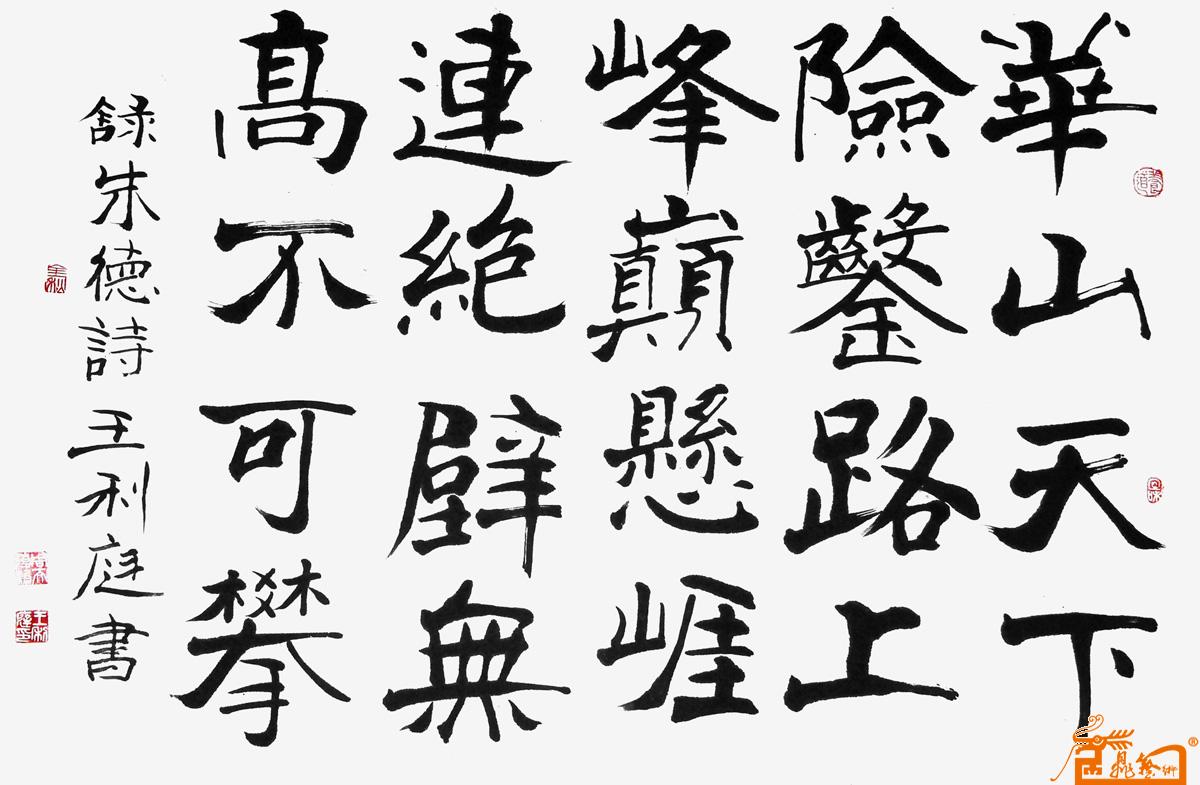 華山天下
險鑿路上
峰巔懸崖
連絶壁無
高不可攀
録朱德詩王利庭書